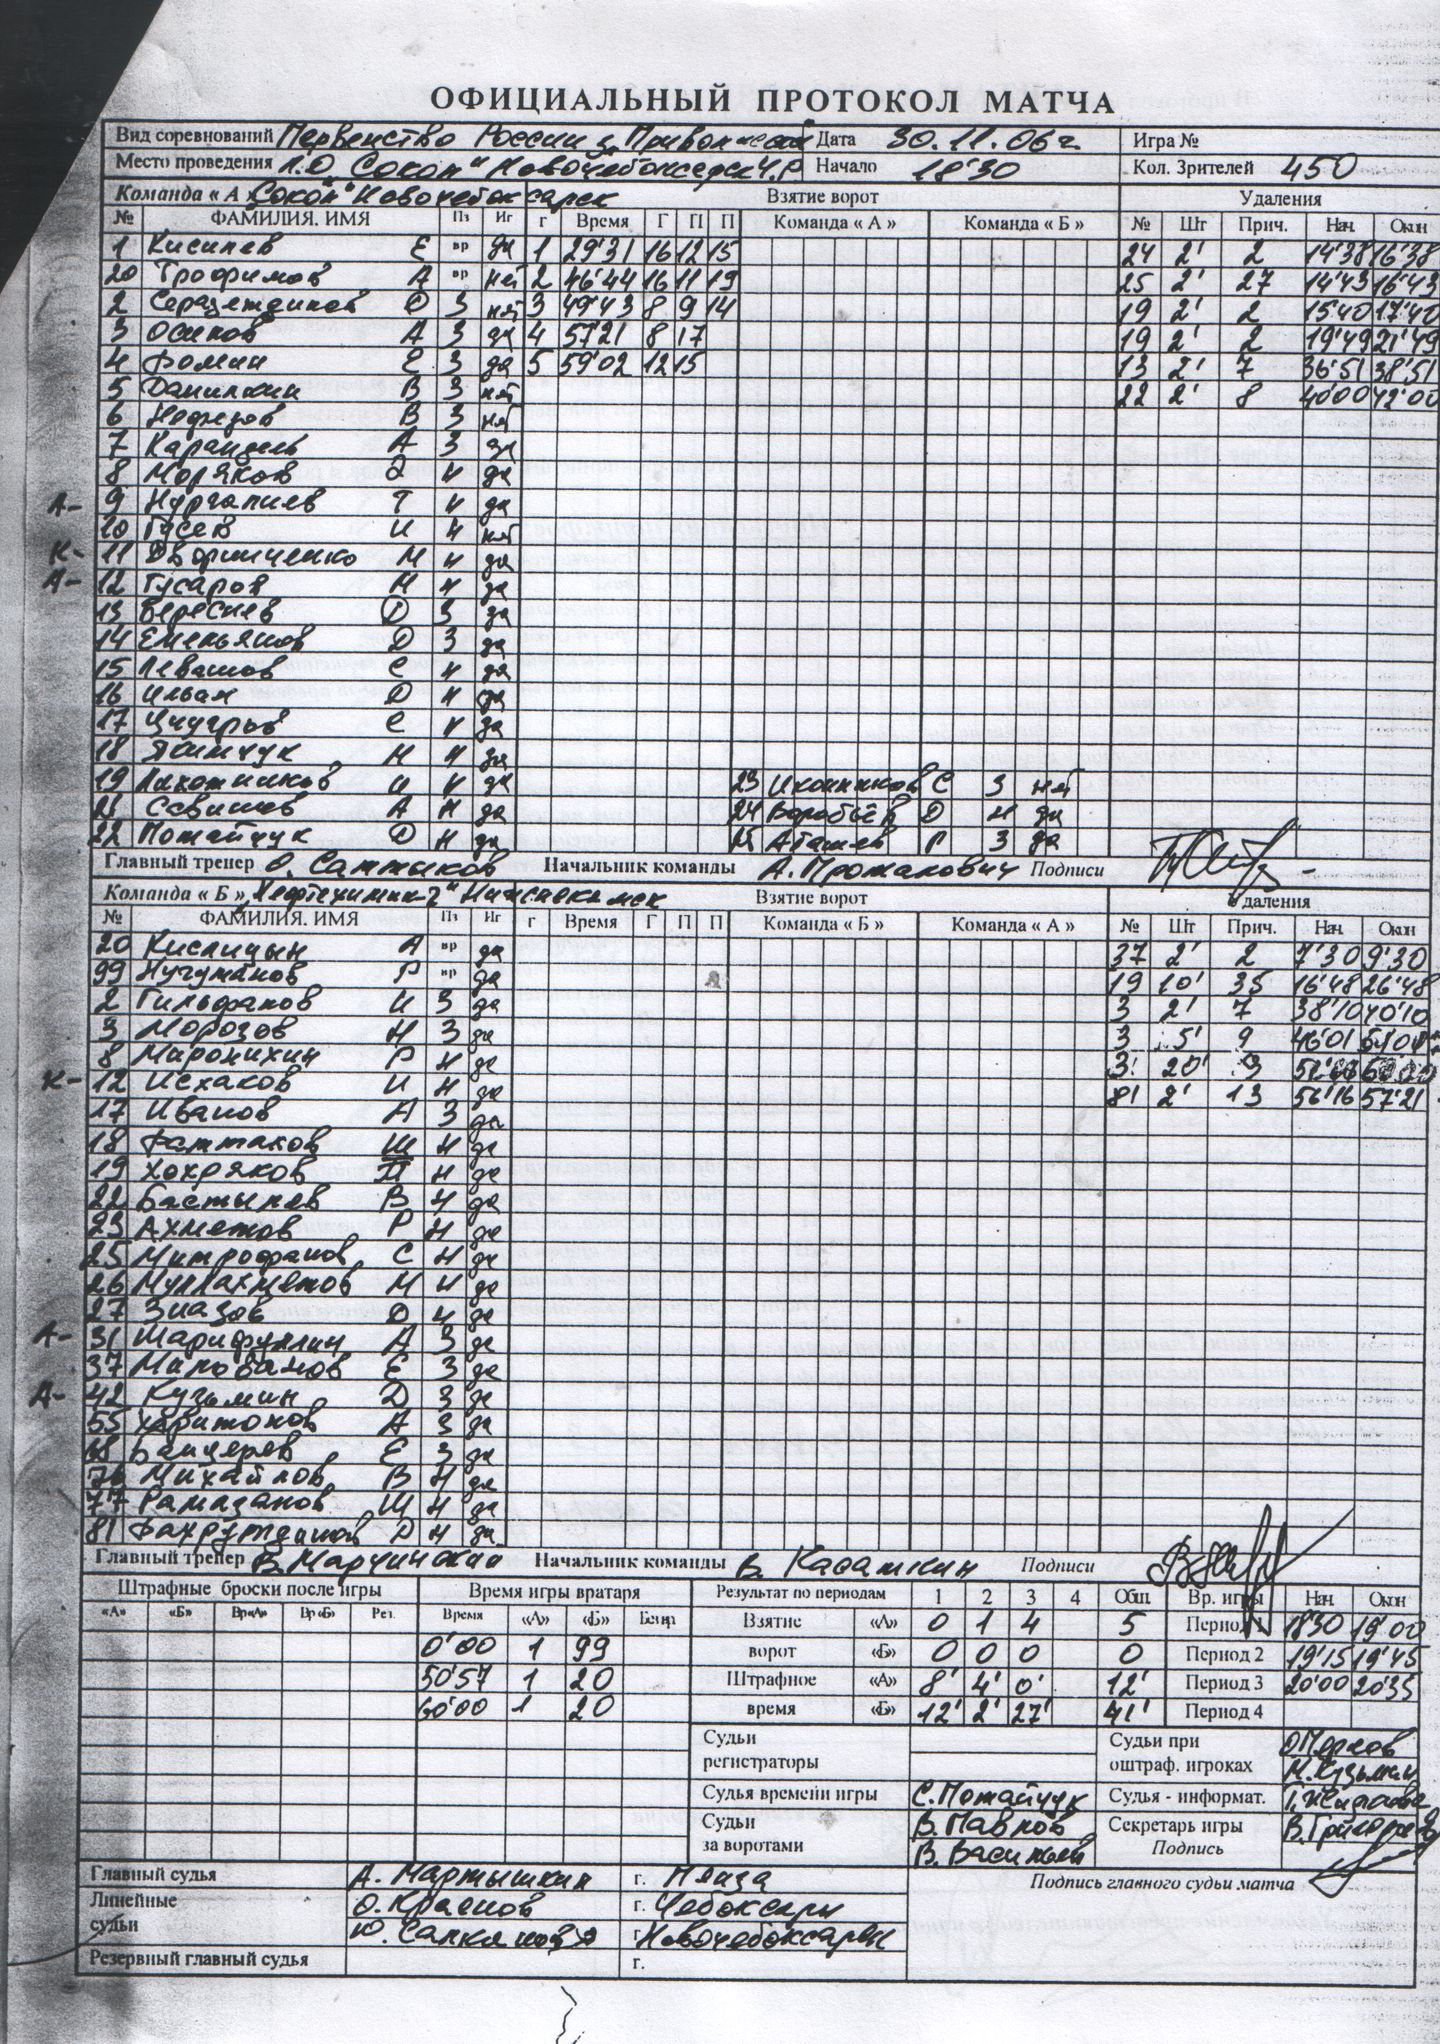 ОФИЦИАЛЬНЫЙ ПРОТОКОЛ МАТЧА
Вид соревнований Первенство России з. Дата 30.11.06г. Игра №
Место проведения Л.Д. „Сокол" Новочебоксарск Ч.Р Начало 18'30 Кол. Зрителей 450
Команда « А „Сокол" Новочебоксарск Взятие ворот Удаления
№ ФАМИЛИЯ. ИМЯ Пз Иг г Время Г П П Команда « А » Команда « Б » № Шт Прич. Нач. Окон
1 Киселев Е вр да 1 29'31 16 12 15 24 2' 2 14'38 16'38
20 Трофимов А вр нет 2 46'44 16 11 19 25 2' 27 14'43 16'43
2 Д З нет 3 49'43 8 9 14 19 2' 2 15'40 17'40
3 Осипов А З да 4 57'21 8 17 19 2' 2 19'49 21'49
4 Фомин Е З да 5 59'02 12 15 13 2' 7 36'51 38'51
5 Данилкин В З нет 22 2' 8 40'00 42'00
6 В З нет
7 Карандель А З да
8 Моряков Э н да
А- 9 Нургалиев Т н да
10 Гусев И н нет
К- 11 Дворниченко М н да
А- 12 Гусаров Н н да
13 Береснев Д З да
14 Емельянов Д З да
15 Левашов С н да
16 Ильин Д н да
17 С н да
18 Н н да
19 Пахотников и н да 23 Иконников С З нет
21 Савинов А н да 24 Воробьёв Д н да
22 Потайчук Д н да 25 Аташев Р З да
Главный тренер О. Салтыков Начальник команды А. Протапович Подписи
Команда « Б » „Нефтехимик-2" Нижнекамск Взятие ворот Удаления
№ ФАМИЛИЯ. ИМЯ Пз Иг г Время Г П П Команда « Б » Команда « А » № Шт Прич. Нач. Окон
20 Кислицын А вр да 37 2' 2 7'30 9'30
99 Нугуманов Р вр да 19 10' 35 16'48 26'48
2 Гильфанов И З да 3 2' 7 38'10 40'10
3 Морозов Н З да 3 5' 9 46'01
8 Миронихин Р н да 3 20' 9
К- 12 Исхаков И н да 81 2' 13 56'16 57'21
17 Иванов А З да
18 Фаттахов Ш н да
19 Хохряков П н да
22 Бастылев В н да
23 Ахметов Р н да
25 Митрофанов С н да
26 Муллахметов М н да
27 Зиазов Д н да
А- 31 Шарифуллин А З да
37 Милованов Е З да
А- 42 Кузьмин Д З да
55 Харитонов А З да
68 Е З да
76 Михайлов В н да
77 Рамазанов Ш н да
81 Фахрутдинов Р н да
Главный тренер В. Марчинский Начальник команды В. Касаткин Подписи
Штрафные броски после игры Время игры вратаря Результат по периодам 1 2 3 4 Общ. Вр. игры Нач. Окон
«А» «Б» Вр«А» Вр«Б» Рез. Время «А» «Б» Взятие «А» 0 1 4 5 Период 1 18'30 19'00
0'00 1 99 ворот «Б» 0 0 0 0 Период 2 19'15 19'45
50'57 1 20 Штрафное «А» 8' 4' 0' 12' Период 3 20'00 20'35
60'00 1 20 время «Б» 12' 2' 27' 41' Период 4
Судьи регистраторы Судьи при оштраф. игроках О. М. Кузьмин
Судья времени игры С. Потайчук Судья - информат.
Судьи за воротами В. Павлов В. Васильев Секретарь игры В.
Подпись
Главный судья А. Мартышкин г. Пенза Подпись главного судьи матча
Линейные О. Краснов г. Чебоксары
судьи Ю. г. Новочебоксарск
Резервный главный судья г.